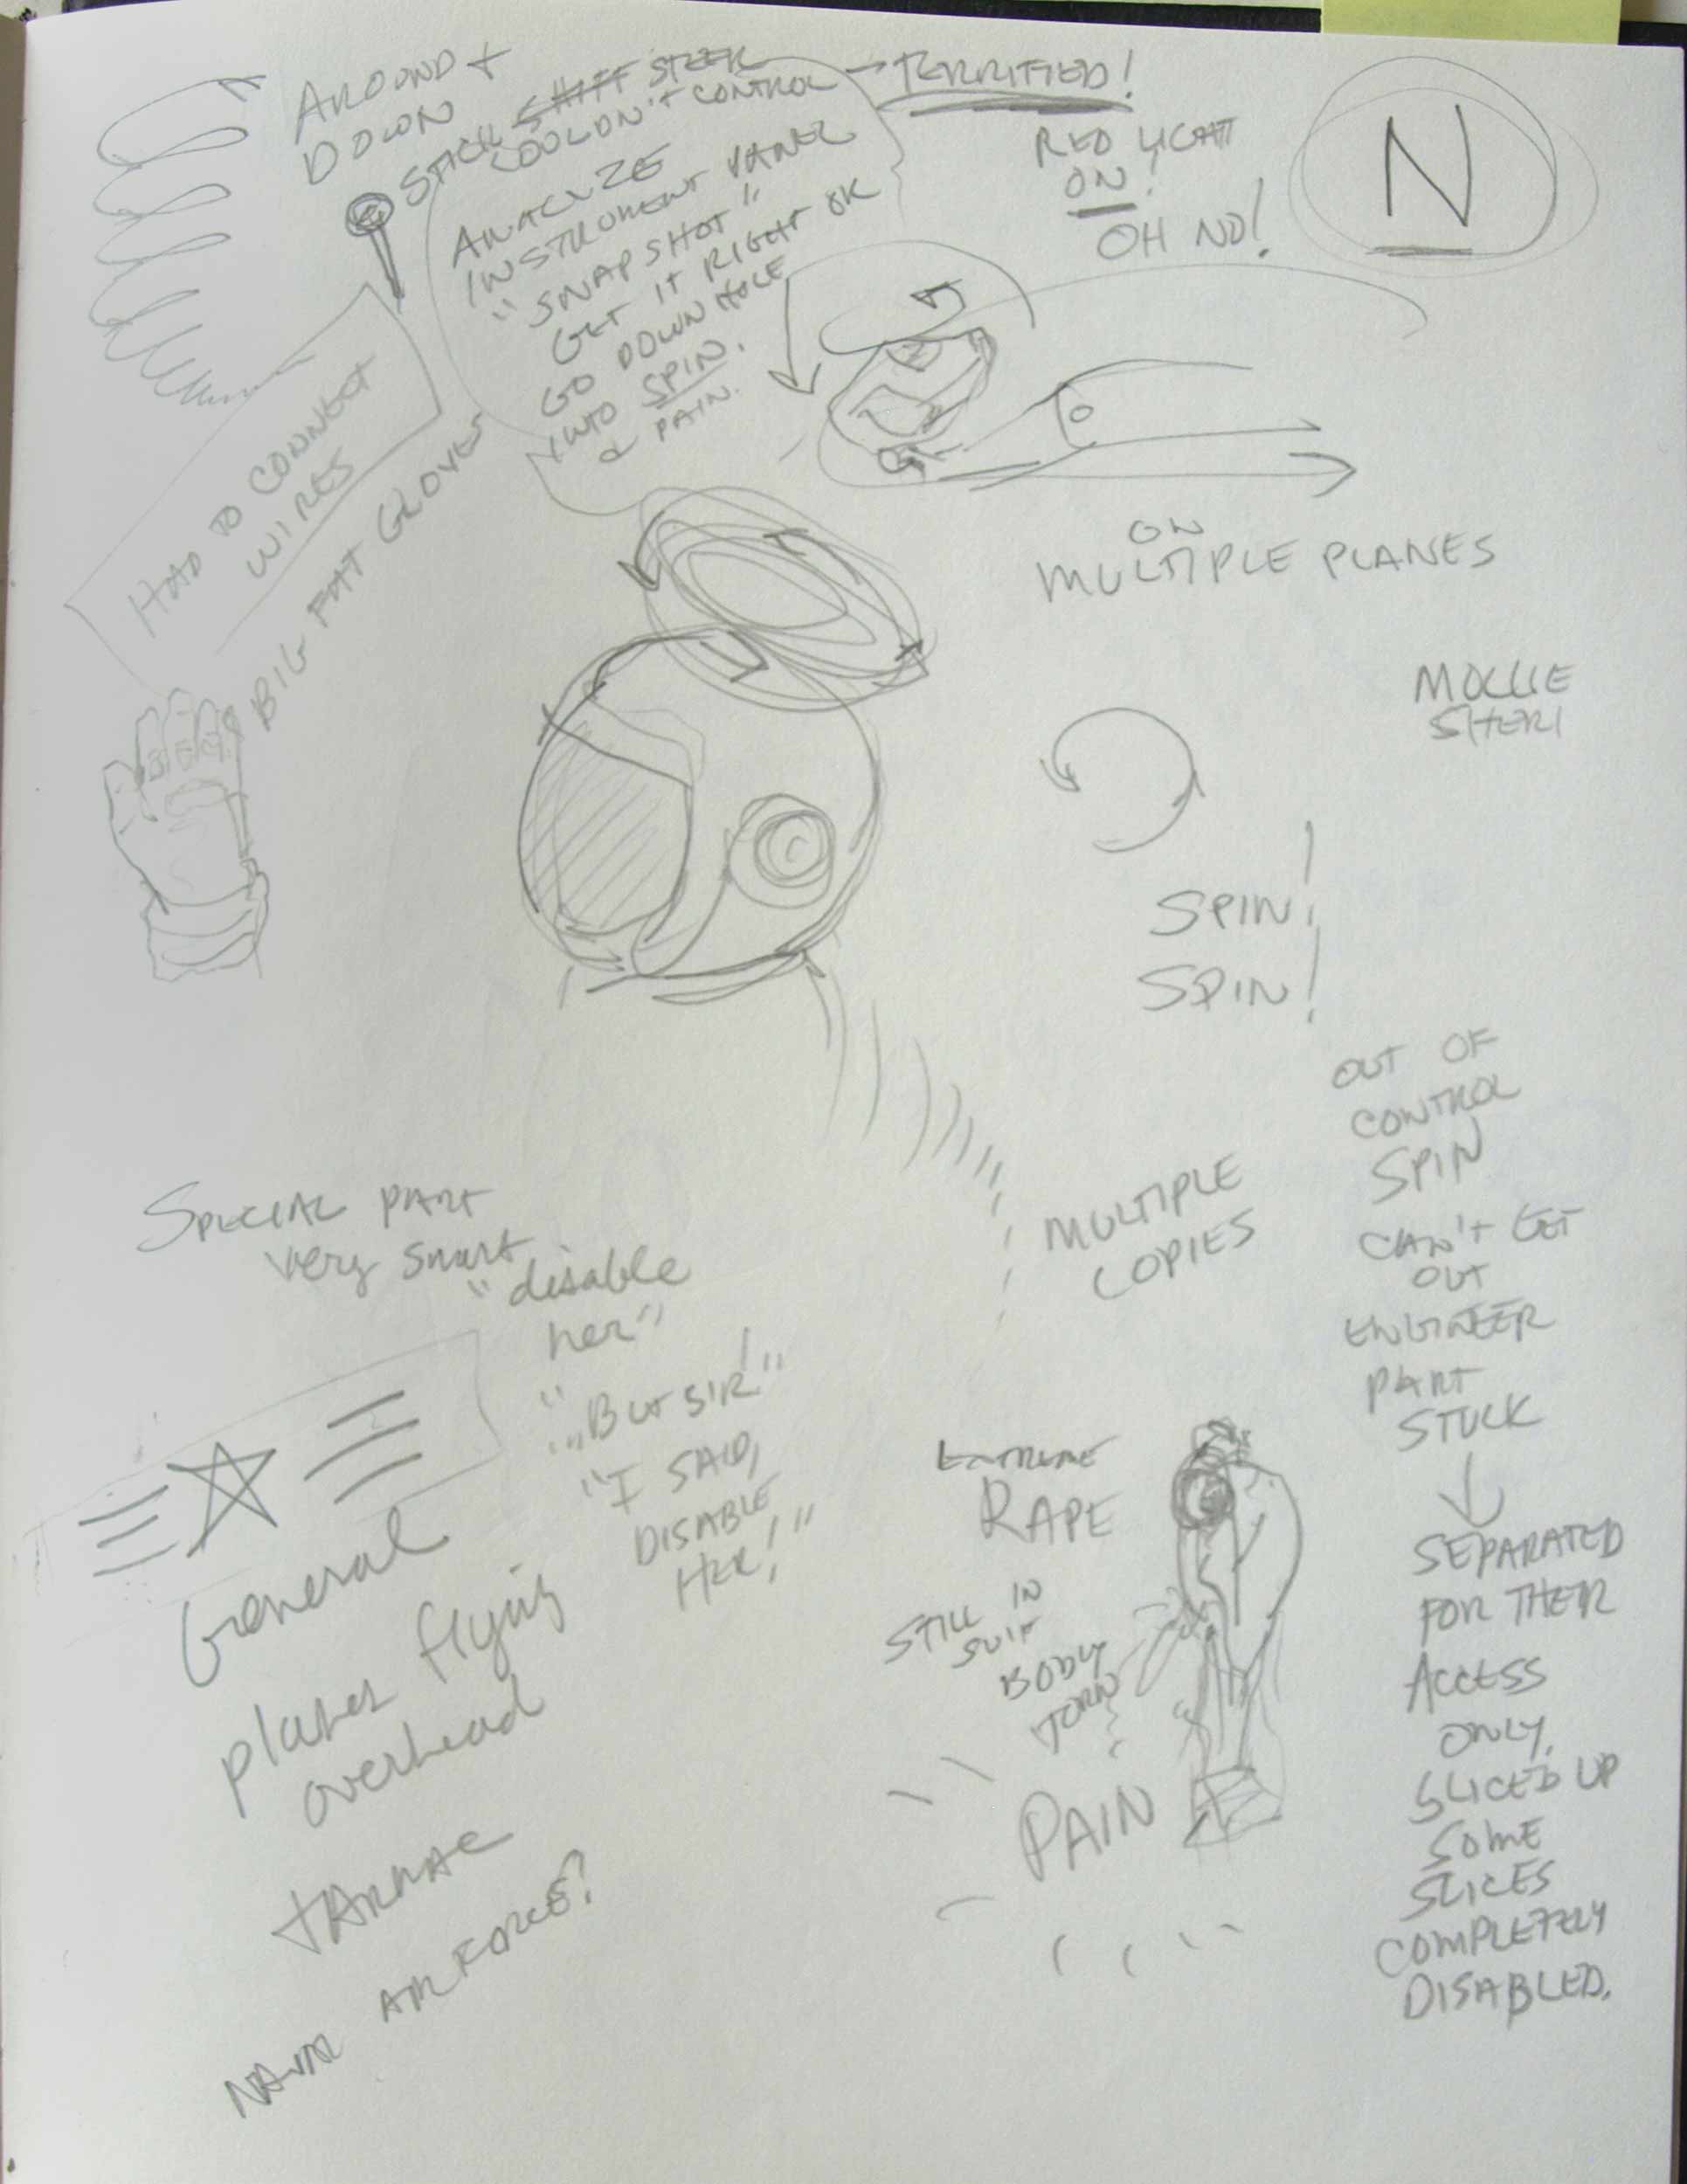 AROUND +
DOWN
STICK SHIFT STEER
COULDN'T CONTROL
→ TERRIFIED!
RED LIGHT
ON!
OH NO!
N
ANALYZE
INSTRUMENT PANEL
"SNAPSHOT"
GET IT RIGHT OR
GO DOWN HOLE
INTO SPIN.
& PAIN.
HAD TO CONNECT
WIRES
BIG FAT GLOVES
ON
MULTIPLE PLANES
MOLLIE
SHERI
SPIN!
SPIN!
OUT OF
CONTROL
SPIN
CAN'T GET
OUT
ENGINEER
PART
STUCK
SEPARATED
FOR THEIR
ACCESS
ONLY.
SLICED UP
SOME
SLICES
COMPLETELY
DISABLED.
MULTIPLE
COPIES
SPECIAL PART
very smart
"disable
her"
"...BUT SIR!"
"I SAID,
DISABLE
HER!"
General
planes flying
overhead
TARMAC
NAVAL AIR FORCE?
EXTREME
RAPE
STILL IN
SUIT
BODY
TORN
PAIN